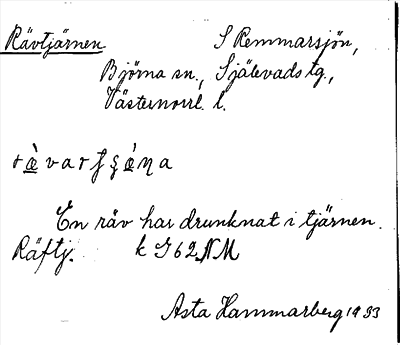 Rävtjärnen S Remmarsjön,
Björna sn., Själevads tg.,
Västernorrl. l.
En räv har drunknat i tjärnen.
Räftj. k J62NM
Asta Hammarberg 1933